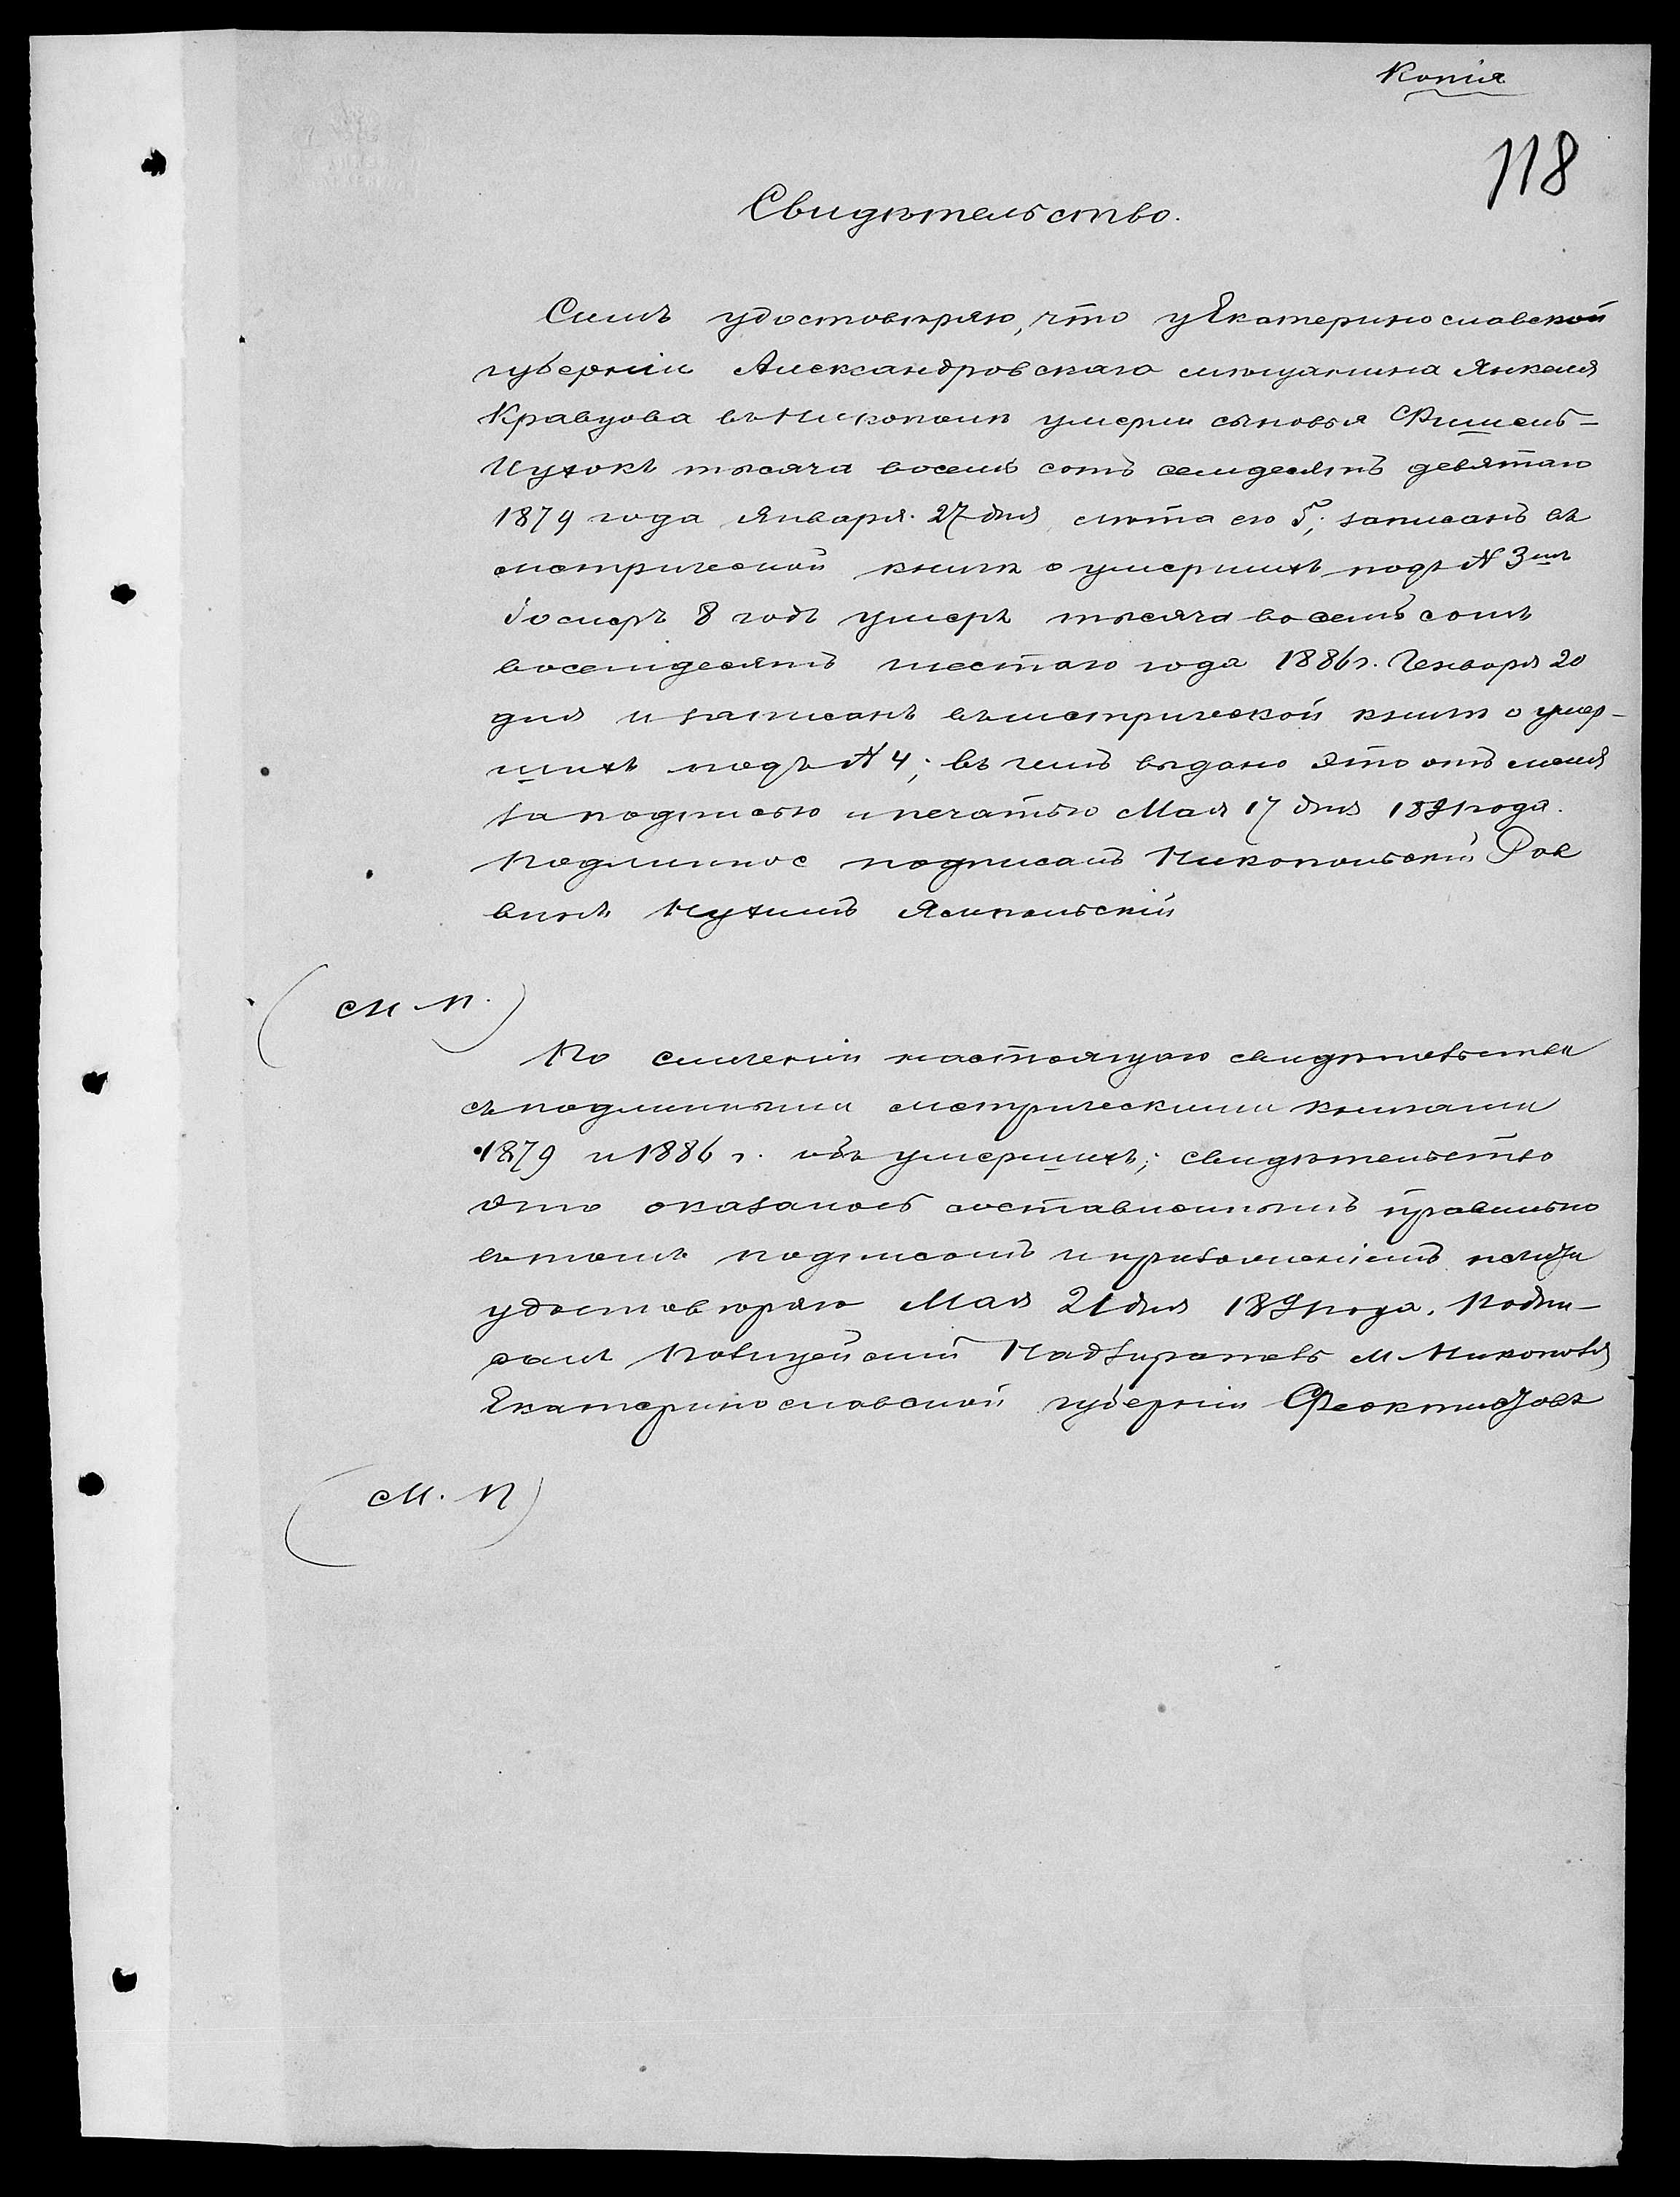 Копія
118
Свидѣтельство.
Симъ удостовѣряю, что у Екатеринославской
губерніи Александровскаго мѣщанина Янкеля
Кравцова въ Никополѣ умерли сыновья Фишель-
Нухокъ тысяча восемь сотъ семдесятъ девятаго
1879 года Января 27 дня, лѣта его 5; записанъ въ
метрической книгѣ о умершихъ подъ № 3мъ
Іосифъ 8 годъ умеръ тысяча восемь сотъ
восемдесятъ шестаго года 1886 г. Генваря 20
дня и записанъ въ метрической книгѣ о умер-
шихъ подъ № 4; въ чемъ выдано это отъ меня
за подписью и печатью Мая 17 дня 1891 года.
Подлинное подписалъ Никопольскій Рав
винъ Нухимъ Ямпольскій
(М. П.)
По сличеніи настоящаго свидѣтельства
съ подлинными метрическими книгами
1879 и 1886 г. объ умершихъ; свидѣтельство
это оказалось составленнымъ правильно
въ томъ подписомъ и приложеніемъ печати
удостовѣряю Мая 21 дня 1891 года. Подпи-
салъ Полицейскій Надзиратель м. Никополя
Екатеринославской губерніи Феоктистовъ
(М. П)